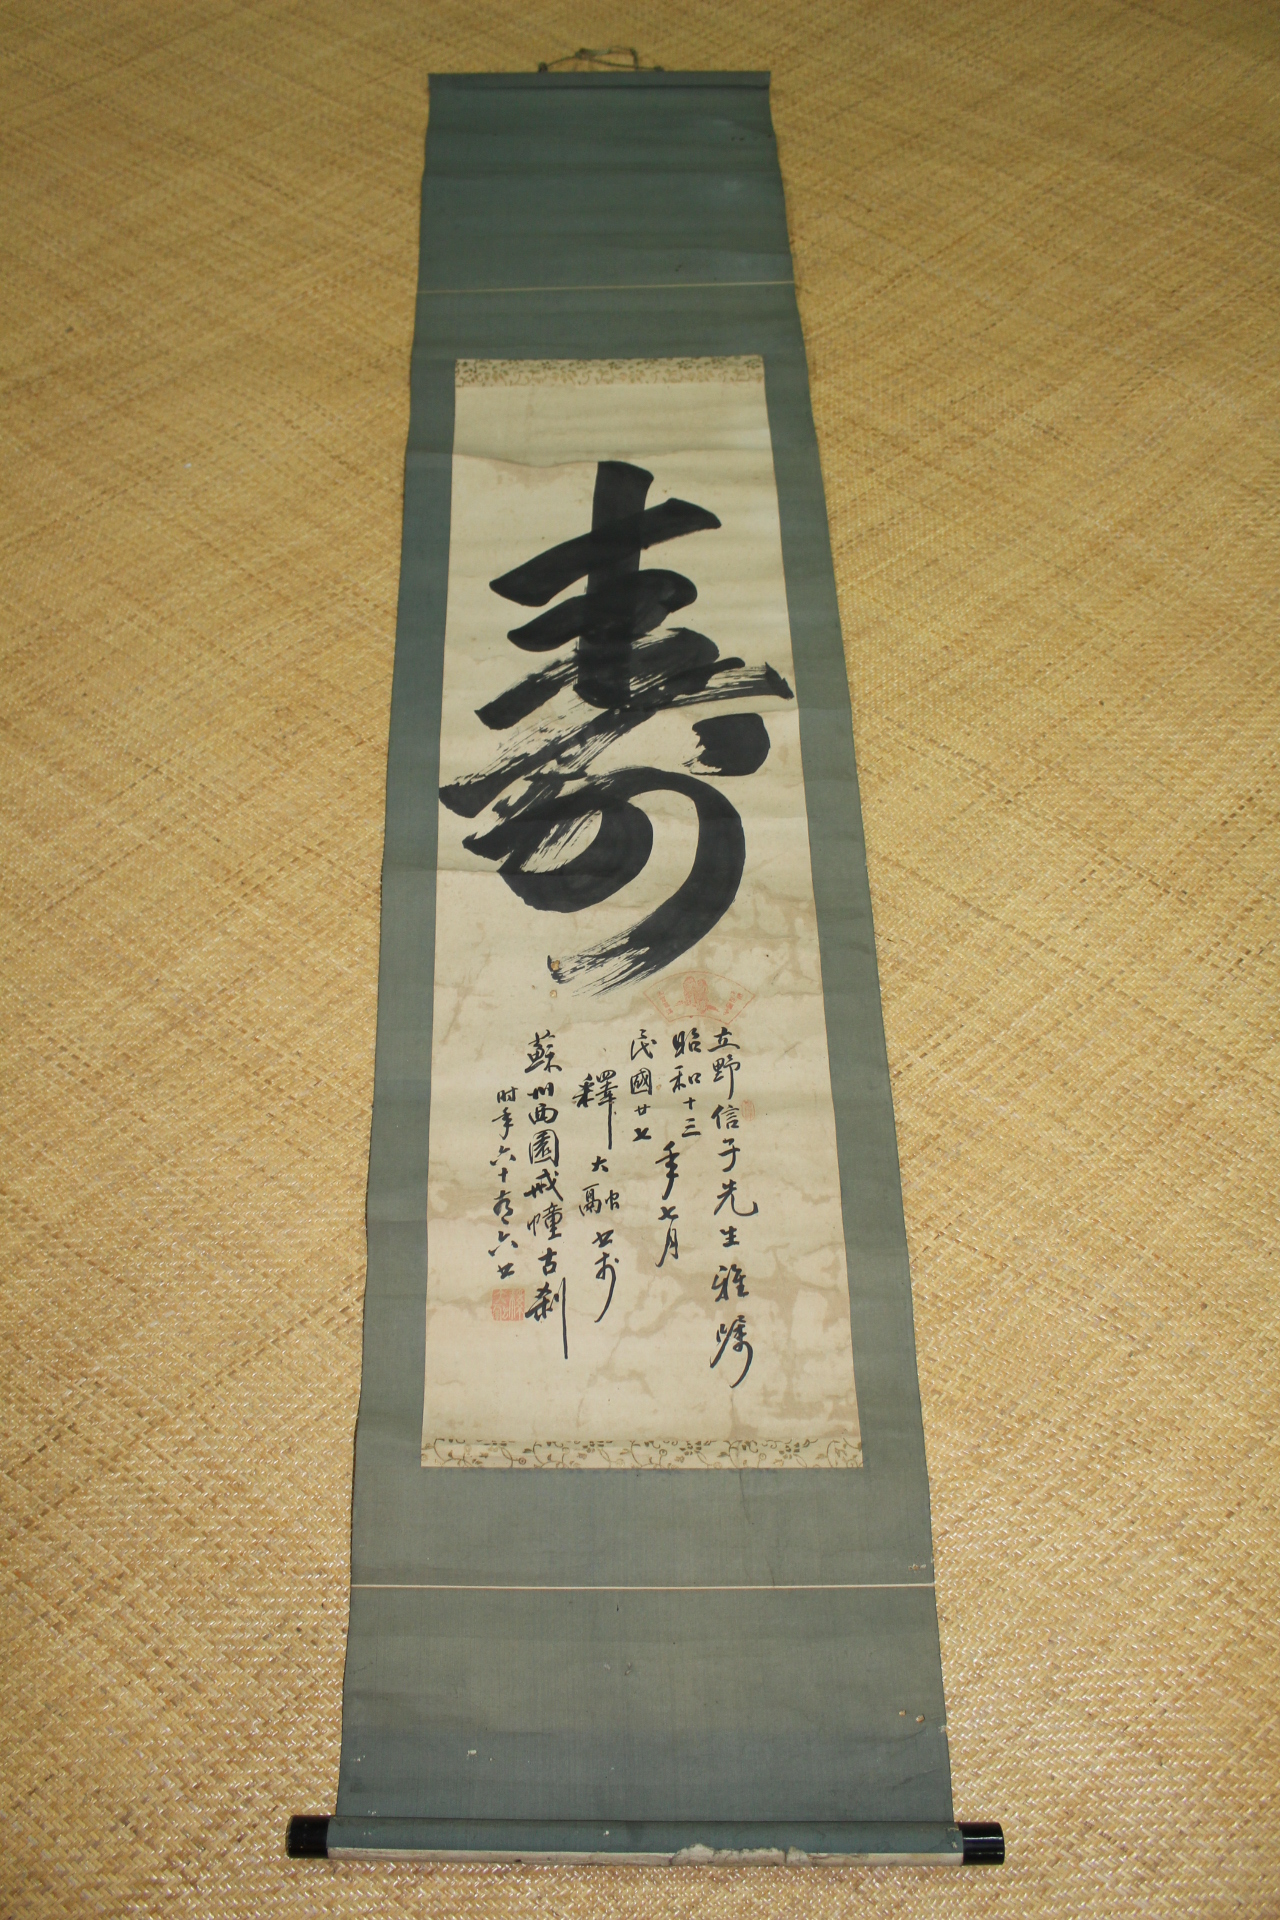 壽
立野信子先生雅属
昭和十三
民國廿七
年七月
釋大融書於
蘇州西園戒幢古剎
时年六十有六